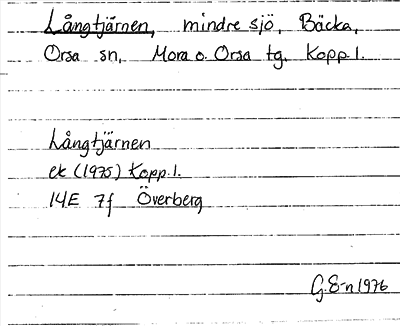 Långtjärnen, mindre sjö, Bäcka,
Orsa sn, Mora o. Orsa tg. Kopp.l.
Långtjärnen
ek (1975) Kopp.l.
14E 7f Överberg
G.E-n 1976